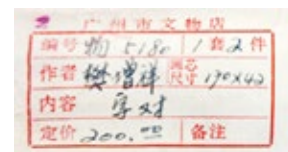 广州市文物店
编号 物5180 1套2件
作者 樊增祥 画芯尺寸 170X42
内容 字对
定价 200.00 备注